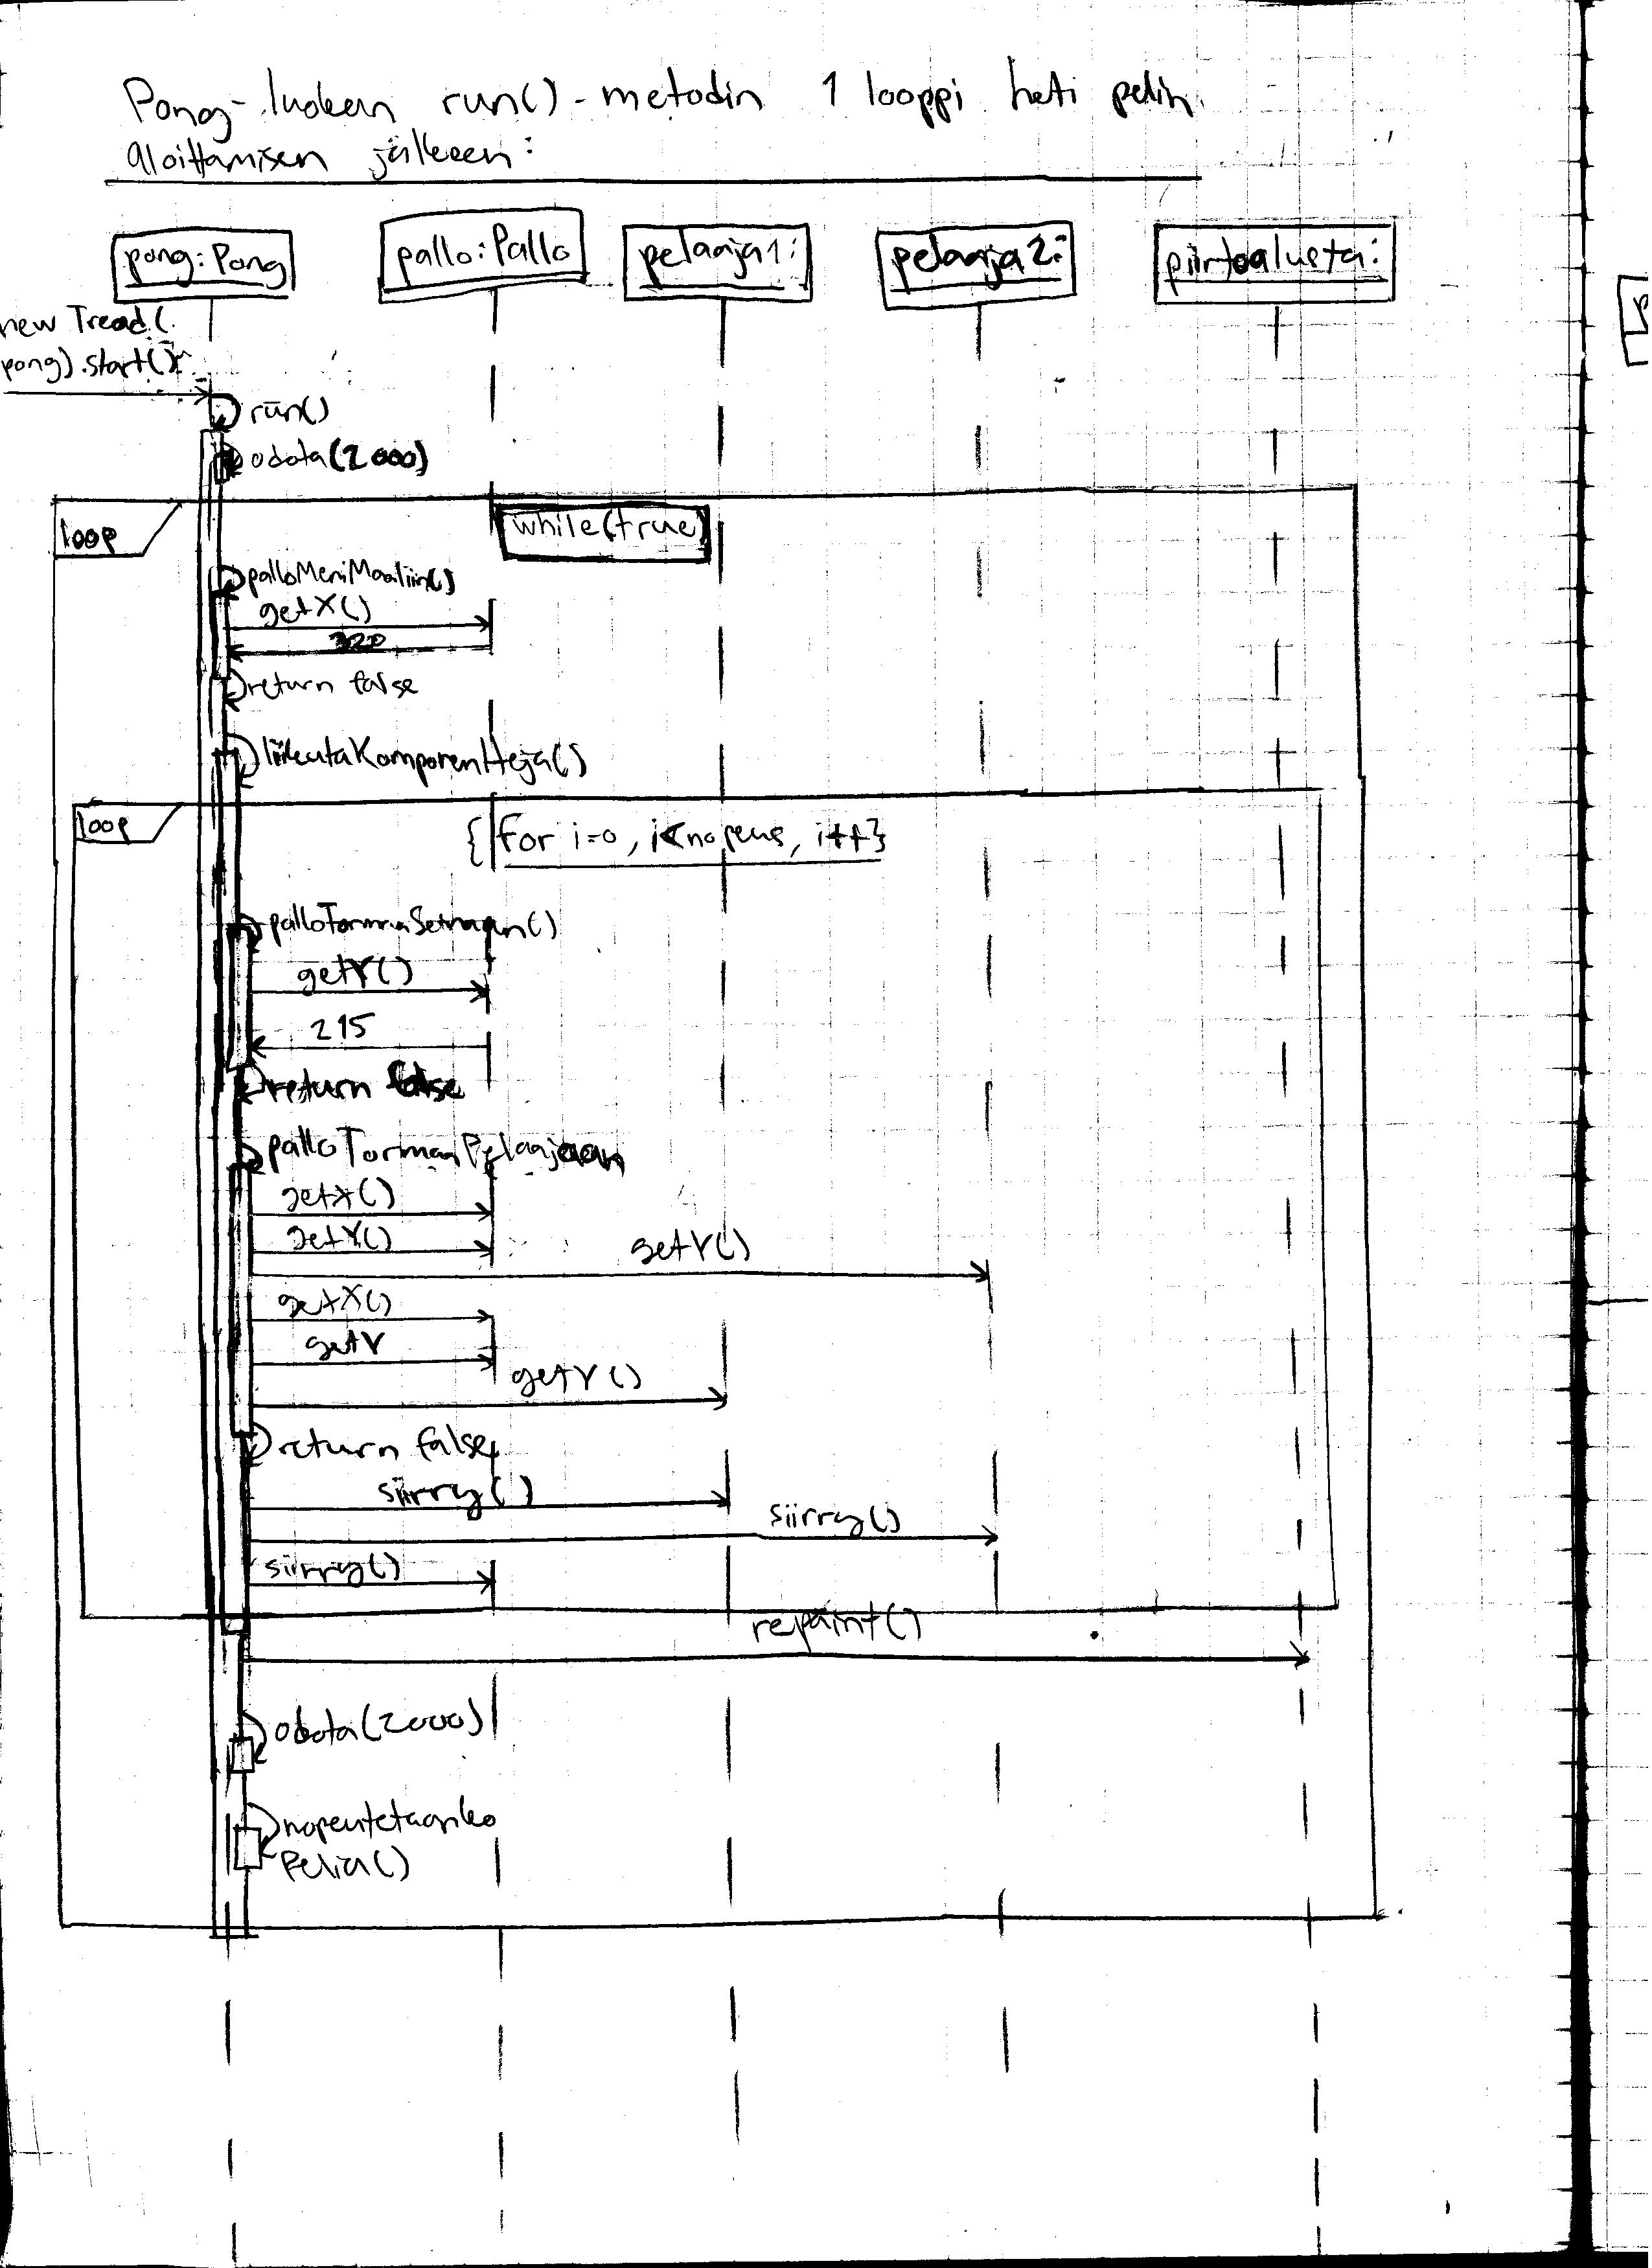 Pong-luokan run()-metodin 1 looppi heti pelin
aloittamisen jälkeen:
pong:Pong
pallo:Pallo
pelaaja1:
pelaaja2:
piirtoalusta:
new Tread(
pong).start()
run()
odota(2000)
loop
while(true)
palloMeniMaaliin()
getX()
320
return false
liikutaKomponentteja()
loop
{for i=0, i<nopeus, i++}
palloTormaaSeinaan()
getY()
215
return false
palloTormaaPelaajaan
getX()
getY()
getY()
getX()
getY
getY()
return false
siirry()
siirry()
siirry()
repaint()
odota(2000)
nopeutetaanko
Pelia()